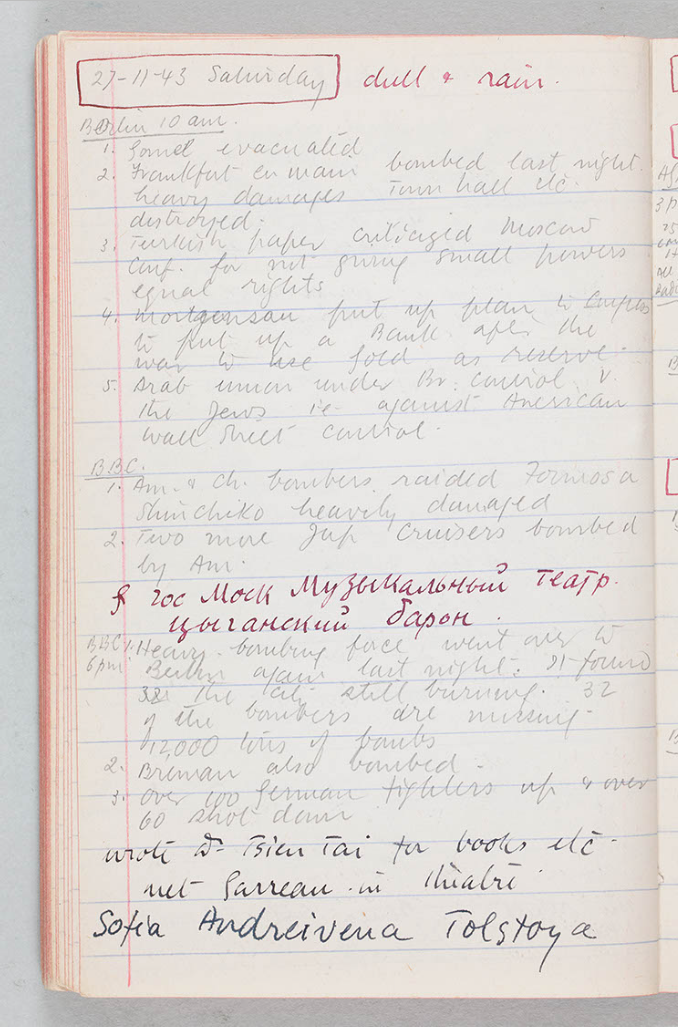 27-11-43 Saturday dull & rain.
Berlin 10 am.
1. Gomel evacuated
2. Frankfurt en main bombed last night.
heavy damages Town hall etc.
destroyed.
3. Turkish paper criticized Moscow
Conf. for not giving small powers
equal rights
4. put up plan to
to put up a Bank after the
war to use Gold as reserve.
5. Arab union under Br: control v.
the Jews ie against American
wall Street control.
B.B.C.
1. Am. & Ch. bombers raided Formosa
Shinchiko heavily damaged
2. Two more Jap Cruisers bombed
by Am.
гос Моск Музыкальный театр.
цыганский барон.
BBC 1. Heavy bombing force went over to
6pm Berlin again last night. It found
the city still burning. 32
of the bombers are missing.
12,000 tons of bombs
2. Breman also bombed.
3. Over 100 German fighters up & over
60 shot down
wrote Dr Tsien Tai for books etc.
met Garreau in théatre
Sofia Andreivena Tolstoya